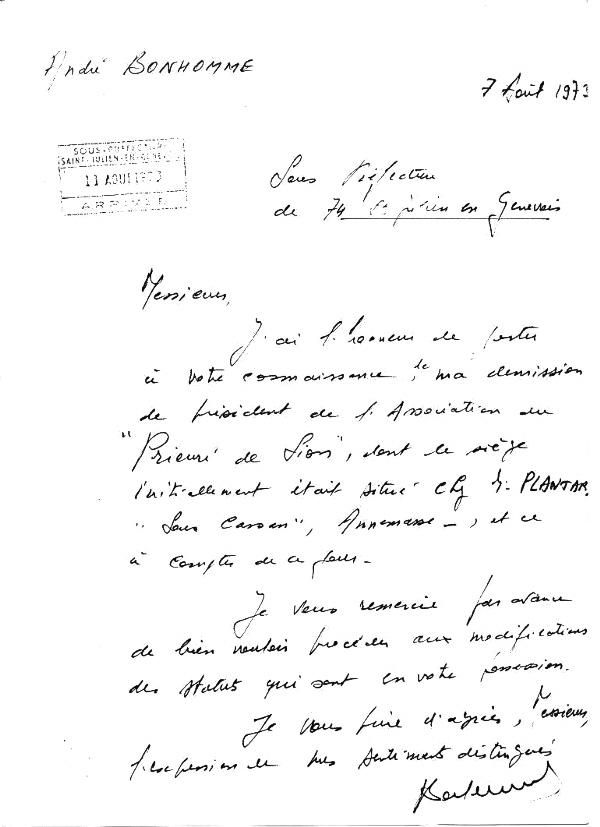 André BONHOMME
7 Août 1973
SOUS-PREFECTURE
SAINT-JULIEN-EN-GENEVOIS
11 AOUT 1973
ARRIVEE
Sous Préfecture
de 74 St Julien en Genevois
Messieurs,
J'ai l'honneur de porter
à votre connaissance, ma démission
de président de l'Association du
"Prieuré de Sion", dont le siège
initialement était situé chez M. PLANTAR,
"Sous Cassan", Annemasse -, et ce
à compter de ce jour -
Je vous remercie par avance
de bien vouloir procéder aux modifications
des statuts qui sont en votre possession.
Je vous prie d'agréer, Messieurs,
l'expression de mes sentiments distingués